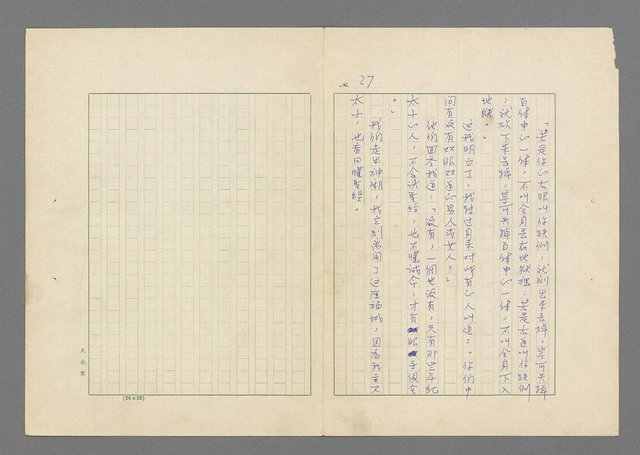 No. 27
「若是你的右眼叫你跌倒，就剜出來丟掉，寧可失掉
百体中的一体，不叫全身丟在地獄裡，若是右手叫你跌倒
，就砍下來丟掉，寧可失掉百体中的一体，不叫全身下入
地獄。」
這我明白了，我轉过身來对所有的人叫道：「你們中
间有沒有双眼双手的男人或女人？」
他們回答我道：「沒有，一個也沒有，只有那些年紀
太小的人，不会读聖經，也不懂誡命，才有眼手俱全
。」
我們走出神廟，我立刻离開了这座福城，因為我並不
太小，也看的懂聖經。
文苑製
(24×25)